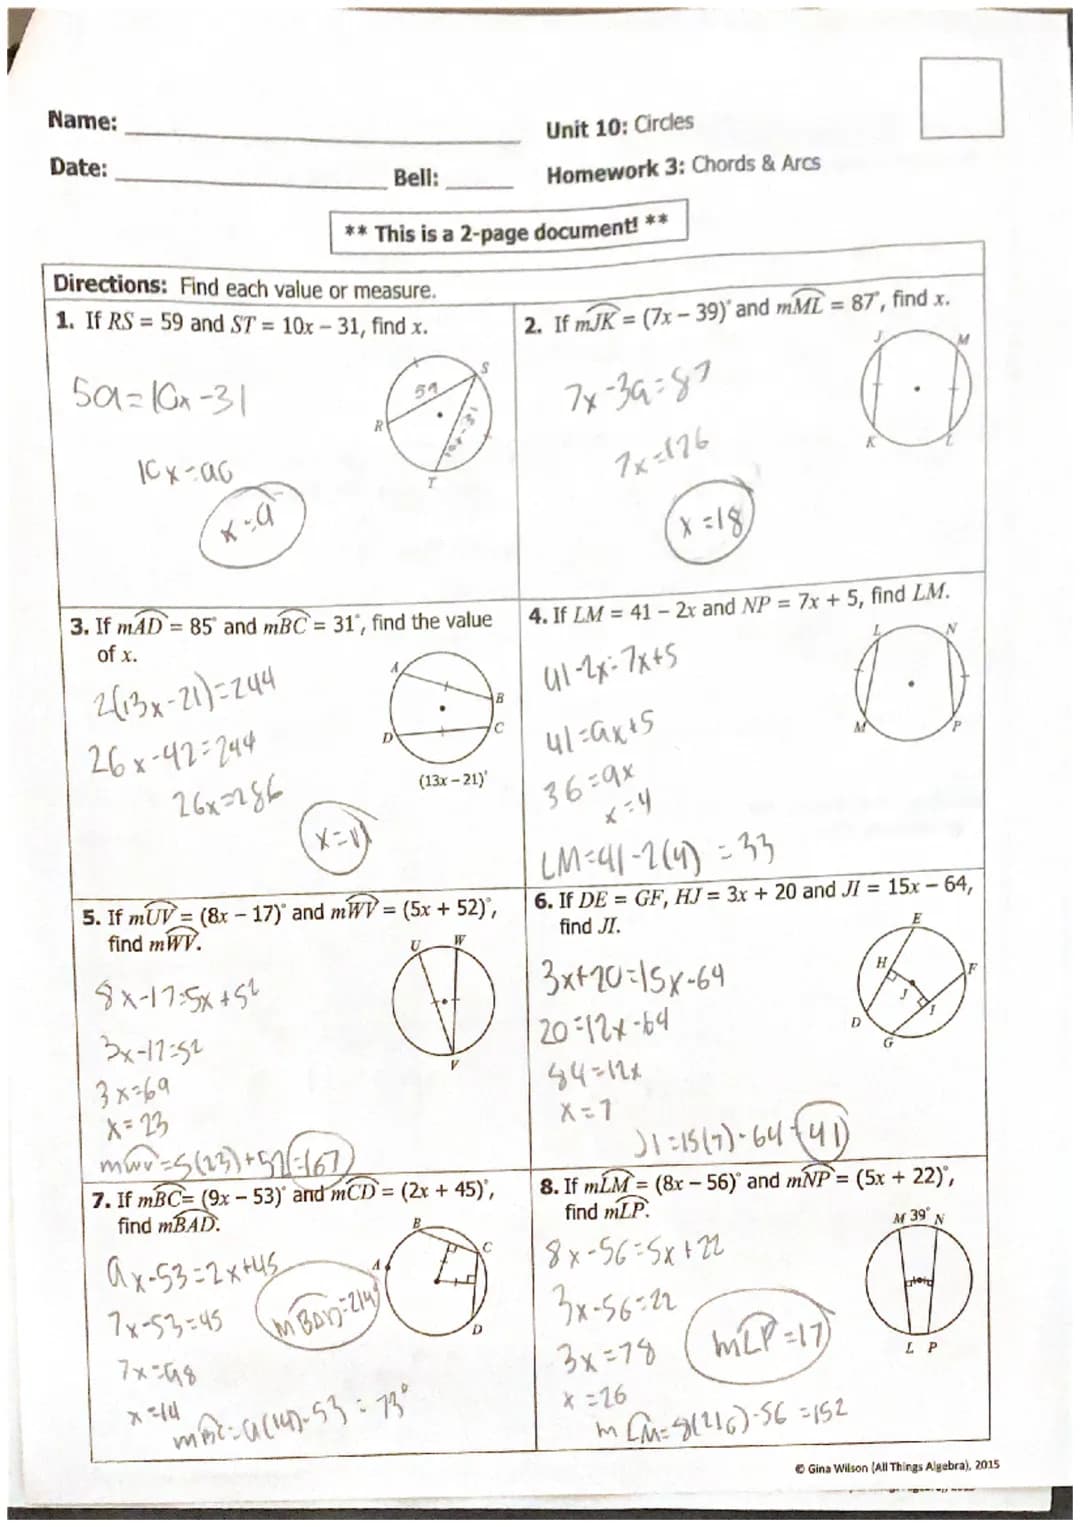 Name:
Unit 10: Circles
Date:
Bell:
Homework 3: Chords & Arcs
** This is a 2-page document! **
Directions: Find each value or measure.
1. If RS = 59 and ST = 10x – 31, find x.
59=10x-31
10x=90
x=9
S
59
R
10x-31
T
2. If mJK = (7x – 39)° and mML = 87°, find x.
7x-39=87
7x=126
x=18
J
M
K
L
3. If mAD = 85° and mBC = 31°, find the value
of x.
2(13x-21)=244
26x-42=244
26x=286
x=11
A
B
D
C
(13x – 21)°
4. If LM = 41 – 2x and NP = 7x + 5, find LM.
41-2x=7x+5
41=9x+5
36=9x
x=4
LM=41-2(4) =33
L
N
M
P
5. If mUV = (8x – 17)° and mWV = (5x + 52)°,
find mWV.
8x-17=5x+52
3x-17=52
3x=69
x=23
mWV=5(23)+52=167
U
W
V
6. If DE = GF, HJ = 3x + 20 and JI = 15x – 64,
find JI.
3x+20=15x-64
20=12x-64
84=12x
x=7
JI=15(7)-64=41
E
H
F
J
I
D
G
7. If mBC= (9x – 53)° and mCD = (2x + 45)°,
find mBAD.
9x-53=2x+45
7x-53=45
7x=98
x=14
mBC=9(14)-53=73°
mBAD=214°
B
C
A
D
8. If mLM = (8x – 56)° and mNP = (5x + 22)°,
find mLP.
8x-56=5x+22
3x-56=22
3x=78
x=26
m LM=8(26)-56=152
mLP=17
M 39° N
L P
© Gina Wilson (All Things Algebra), 2015